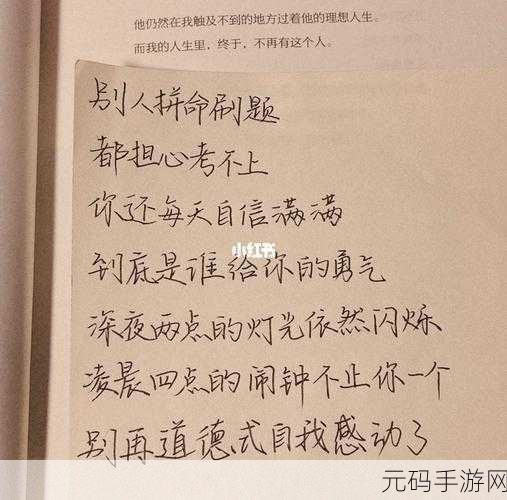 他仍然在我触及不到的地方过着他的理想人生。
而我的人生里，终于，不再有这个人。
别人拼命刷题
都担心考不上
你还每天自信满满
小红书
到底是谁给你的勇气
深夜两点的灯光依然闪烁
凌晨四点的闹钟不止你一个
别再道德式自我感动了
元码手游网